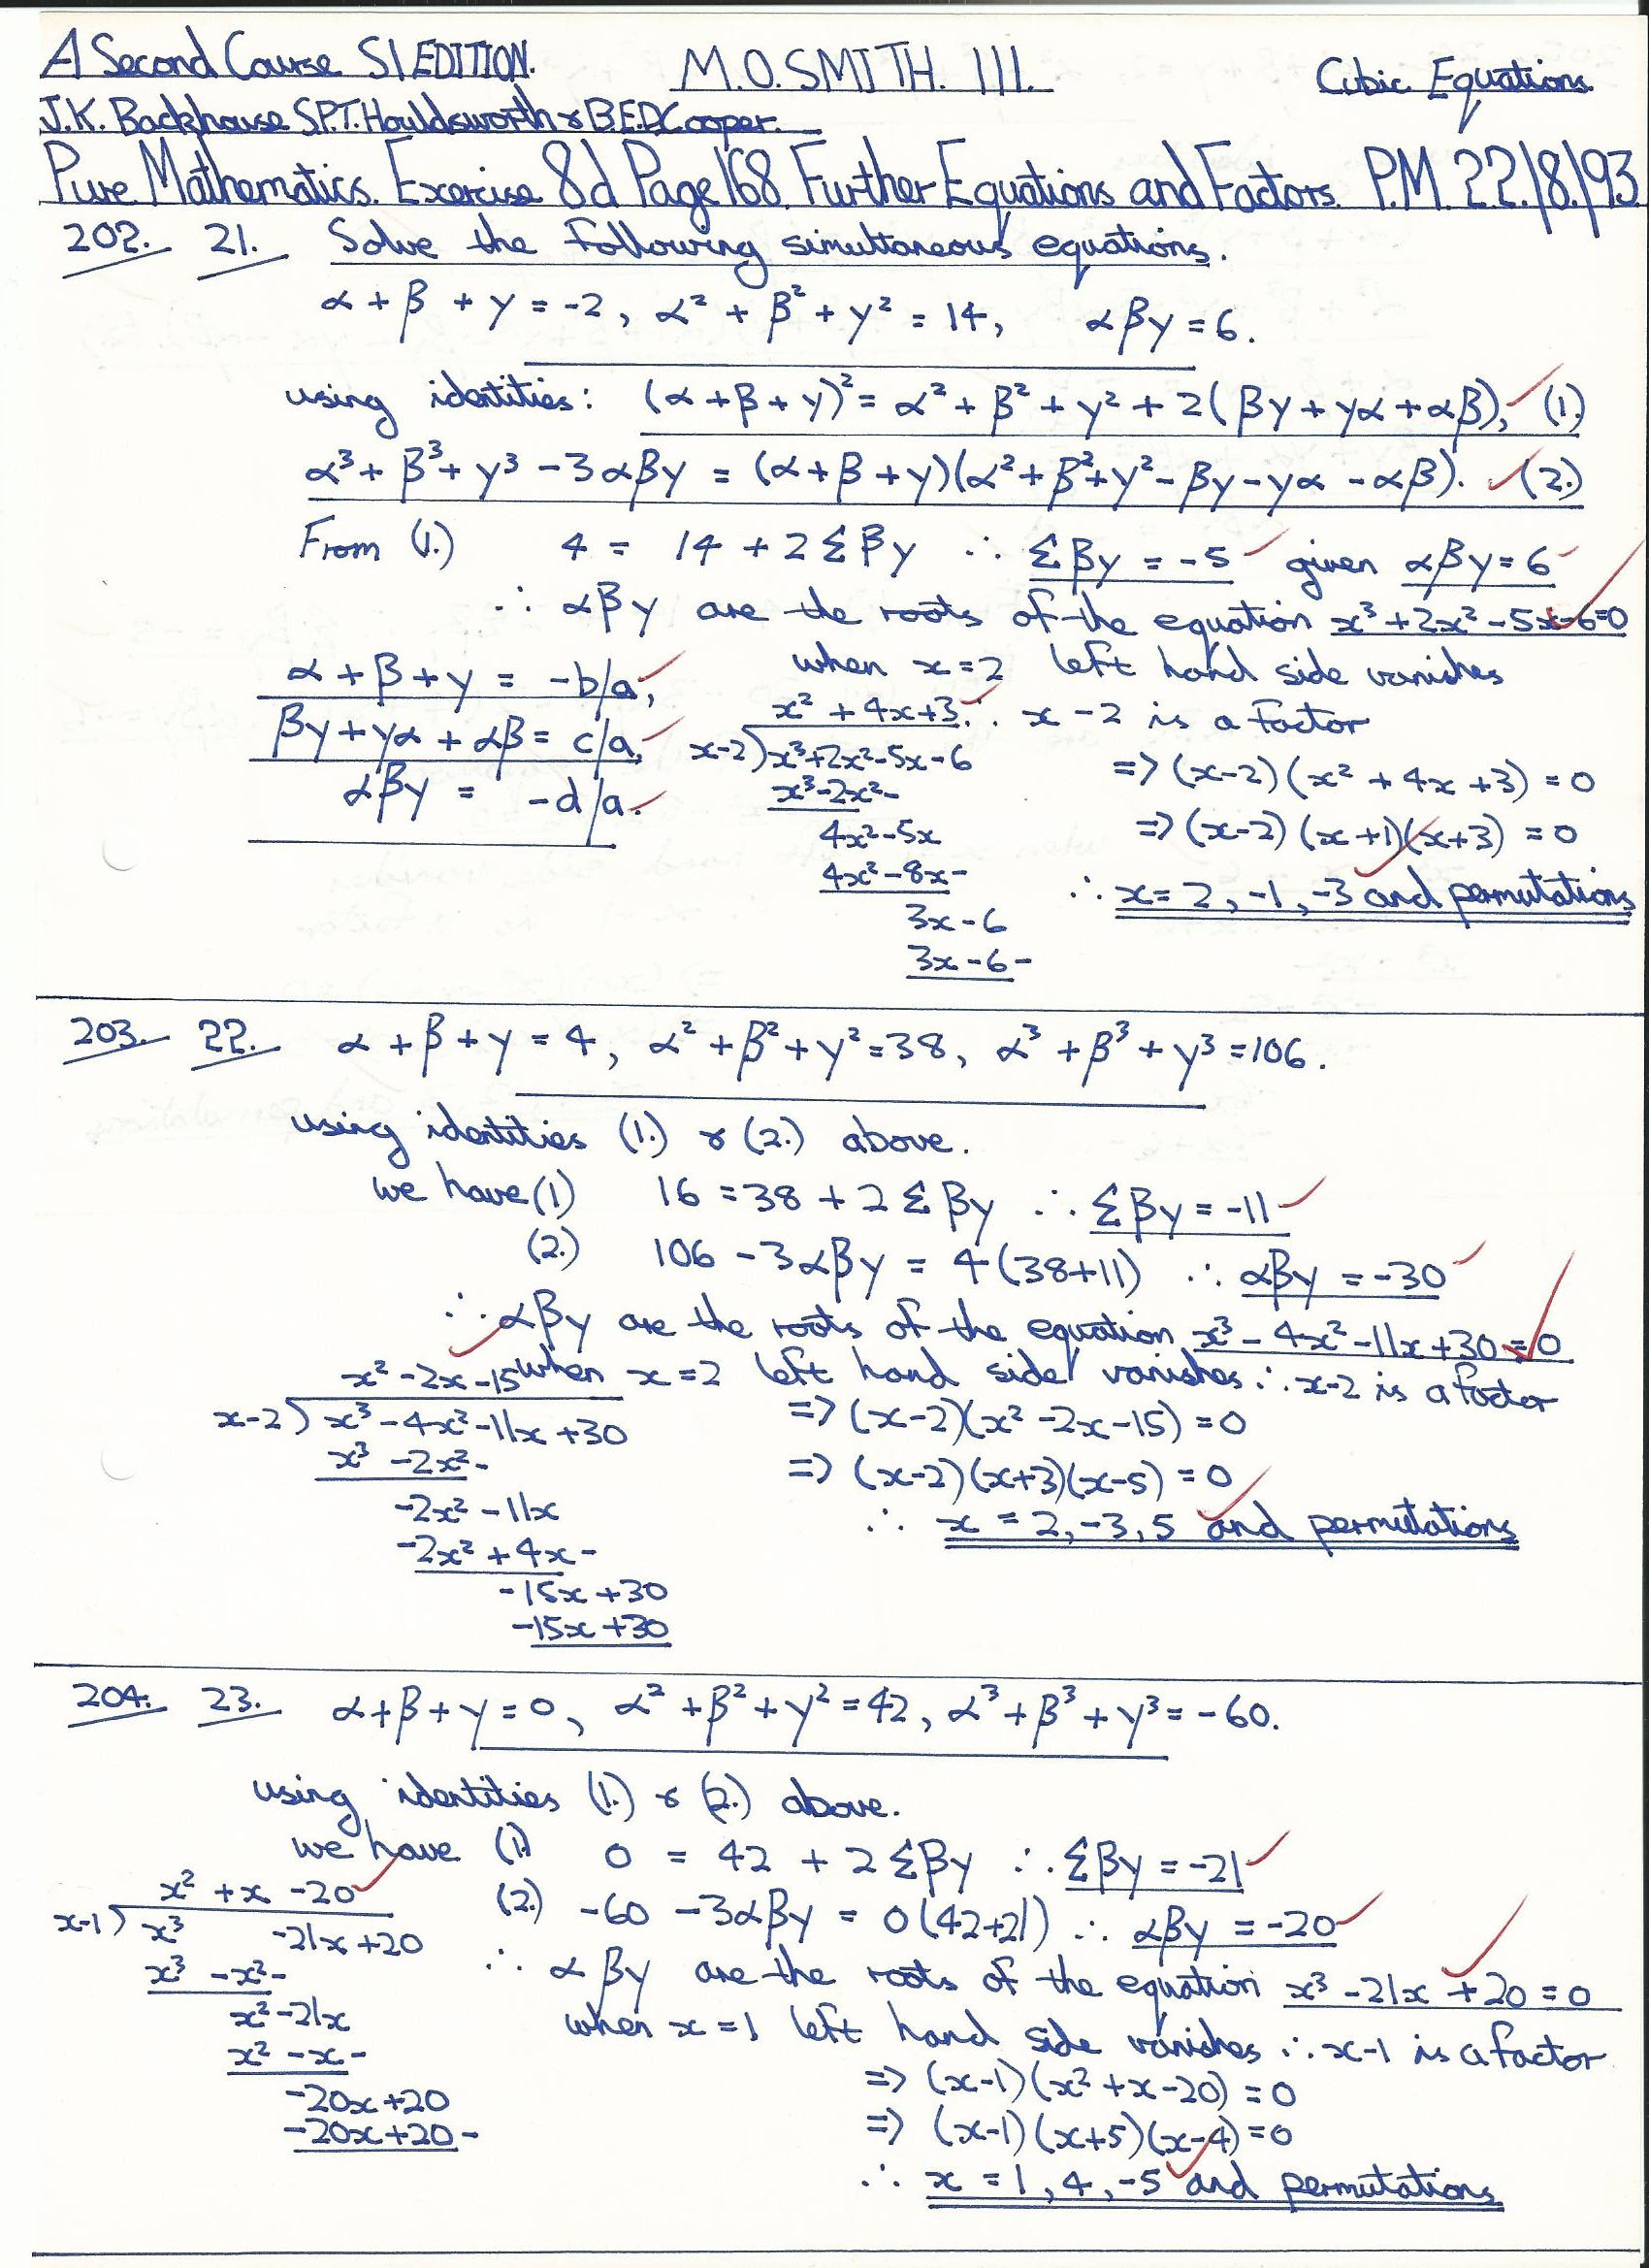 A Second Course SI EDITION. M.O.SMITH. III. Cubic Equations
J.K. Backhouse S.P.T. Houldsworth & B.E.D. Cooper.
Pure Mathematics. Exercise 8d Page 168. Further Equations and Factors. P.M. 22/8/93.
202. 21. Solve the following simultaneous equations.
α + β + γ = -2, α² + β² + γ² = 14, αβγ = 6.
using identities: (α + β + γ)² = α² + β² + γ² + 2(βγ + γα + αβ), (1.)
α³ + β³ + γ³ - 3αβγ = (α + β + γ)(α² + β² + γ² - βγ - γα - αβ). (2.)
From (1.) 4 = 14 + 2Σβγ ∴ Σβγ = -5 given αβγ = 6
∴ αβγ are the roots of the equation x³ + 2x² - 5x - 6 = 0
when x = 2 left hand side vanishes
α + β + γ = -b/a,
x² + 4x + 3 ∴ x - 2 is a factor
βγ + γα + αβ = c/a,
x-2) x³+2x²-5x-6 => (x-2)(x² + 4x + 3) = 0
αβγ = -d/a.
x³-2x²-
4x²-5x => (x-2)(x+1)(x+3) = 0
4x²-8x-
∴ x = 2, -1, -3 and permutations
3x-6
3x-6-
203. 22. α + β + γ = 4, α² + β² + γ² = 38, α³ + β³ + γ³ = 106.
using identities (1.) & (2.) above.
we have (1) 16 = 38 + 2Σβγ ∴ Σβγ = -11
(2.) 106 - 3αβγ = 4(38+11) ∴ αβγ = -30
∴ αβγ are the roots of the equation x³ - 4x² - 11x + 30 = 0
x² - 2x - 15 when x = 2 left hand side vanishes ∴ x-2 is a factor
x-2) x³ - 4x² - 11x + 30 => (x-2)(x² - 2x - 15) = 0
x³ - 2x²- => (x-2)(x+3)(x-5) = 0
-2x² - 11x ∴ x = 2, -3, 5 and permutations
-2x² + 4x-
-15x + 30
-15x + 30
204. 23. α + β + γ = 0, α² + β² + γ² = 42, α³ + β³ + γ³ = -60.
using identities (1.) & (2.) above.
we have (1) 0 = 42 + 2Σβγ ∴ Σβγ = -21
x² + x - 20 (2.) -60 - 3αβγ = 0(42+21) ∴ αβγ = -20
x-1) x³ -21x + 20
x³ - x²- ∴ αβγ are the roots of the equation x³ - 21x + 20 = 0
x² - 21x when x = 1 left hand side vanishes ∴ x-1 is a factor
x² - x-
-20x + 20 => (x-1)(x² + x - 20) = 0
-20x + 20- => (x-1)(x+5)(x-4) = 0
∴ x = 1, 4, -5 and permutations